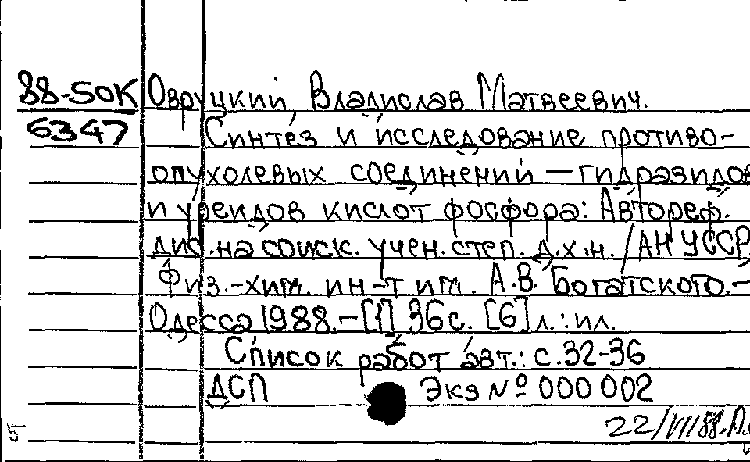 88-50К Овруцкий, Владислав Матвеевич.
6347 Синтез и исследование противо-
опухолевых соединений — гидразидов
и уреидов кислот фосфора: Автореф.
дис. на соиск. учен. степ. д.х.н. /АН УССР,
Физ.-хим. ин-т им. А.В. Богатского.-
Одесса 1988.-[1] 36с. [6] л.: ил.
Список работ авт.: с.32-36
ДСП Экз № 000 002
22/VII 88.
5